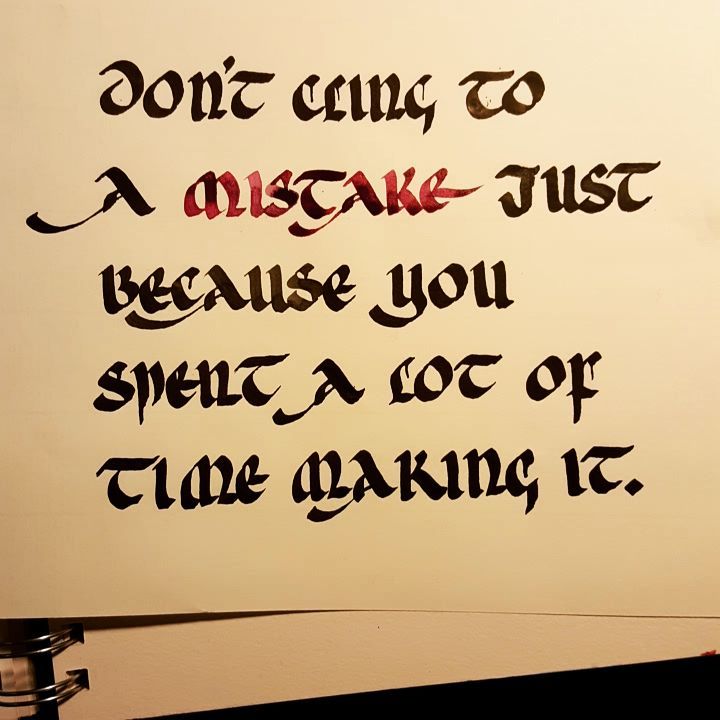 Don't cling to
a mistake just
because you
spent a lot of
time making it.